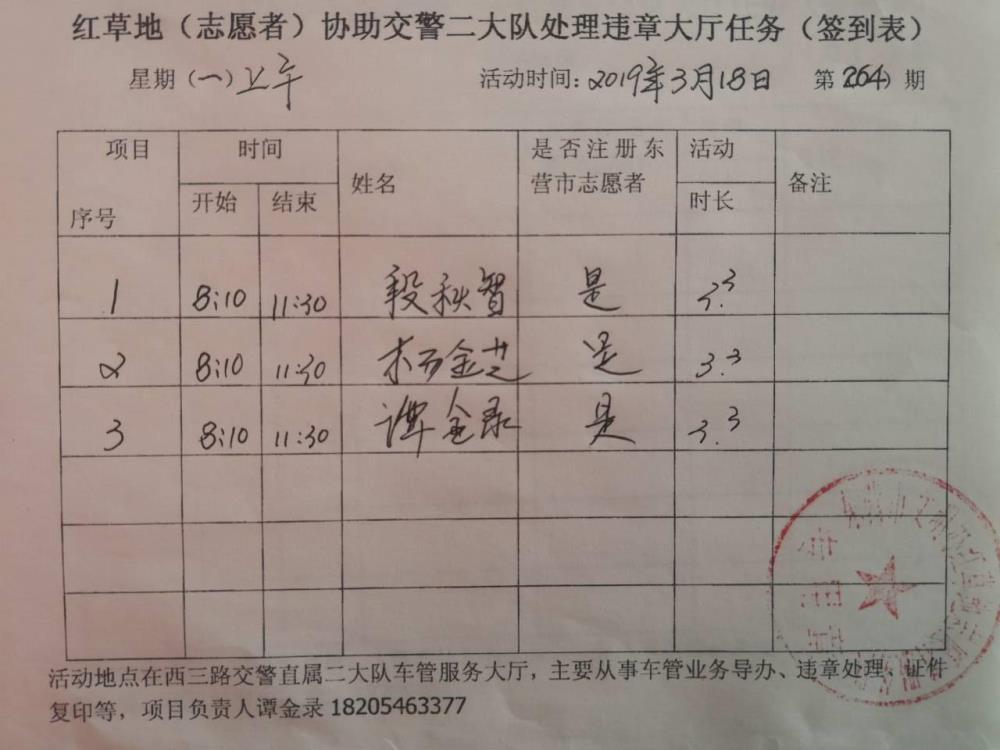 红草地（志愿者）协助交警二大队处理违章大厅任务（签到表）
星期（一）上午 活动时间：2019年3月18日 第264期
项目 时间 姓名 是否注册东营市志愿者 活动时长 备注
序号 开始 结束
1 8:10 11:30 段秋智 是 3.3
2 8:10 11:30 金芝 是 3.3
3 8:10 11:30 谭金录 是 3.3
活动地点在西三路交警直属二大队车管服务大厅，主要从事车管业务导办、违章处理、证件
复印等，项目负责人谭金录 18205463377